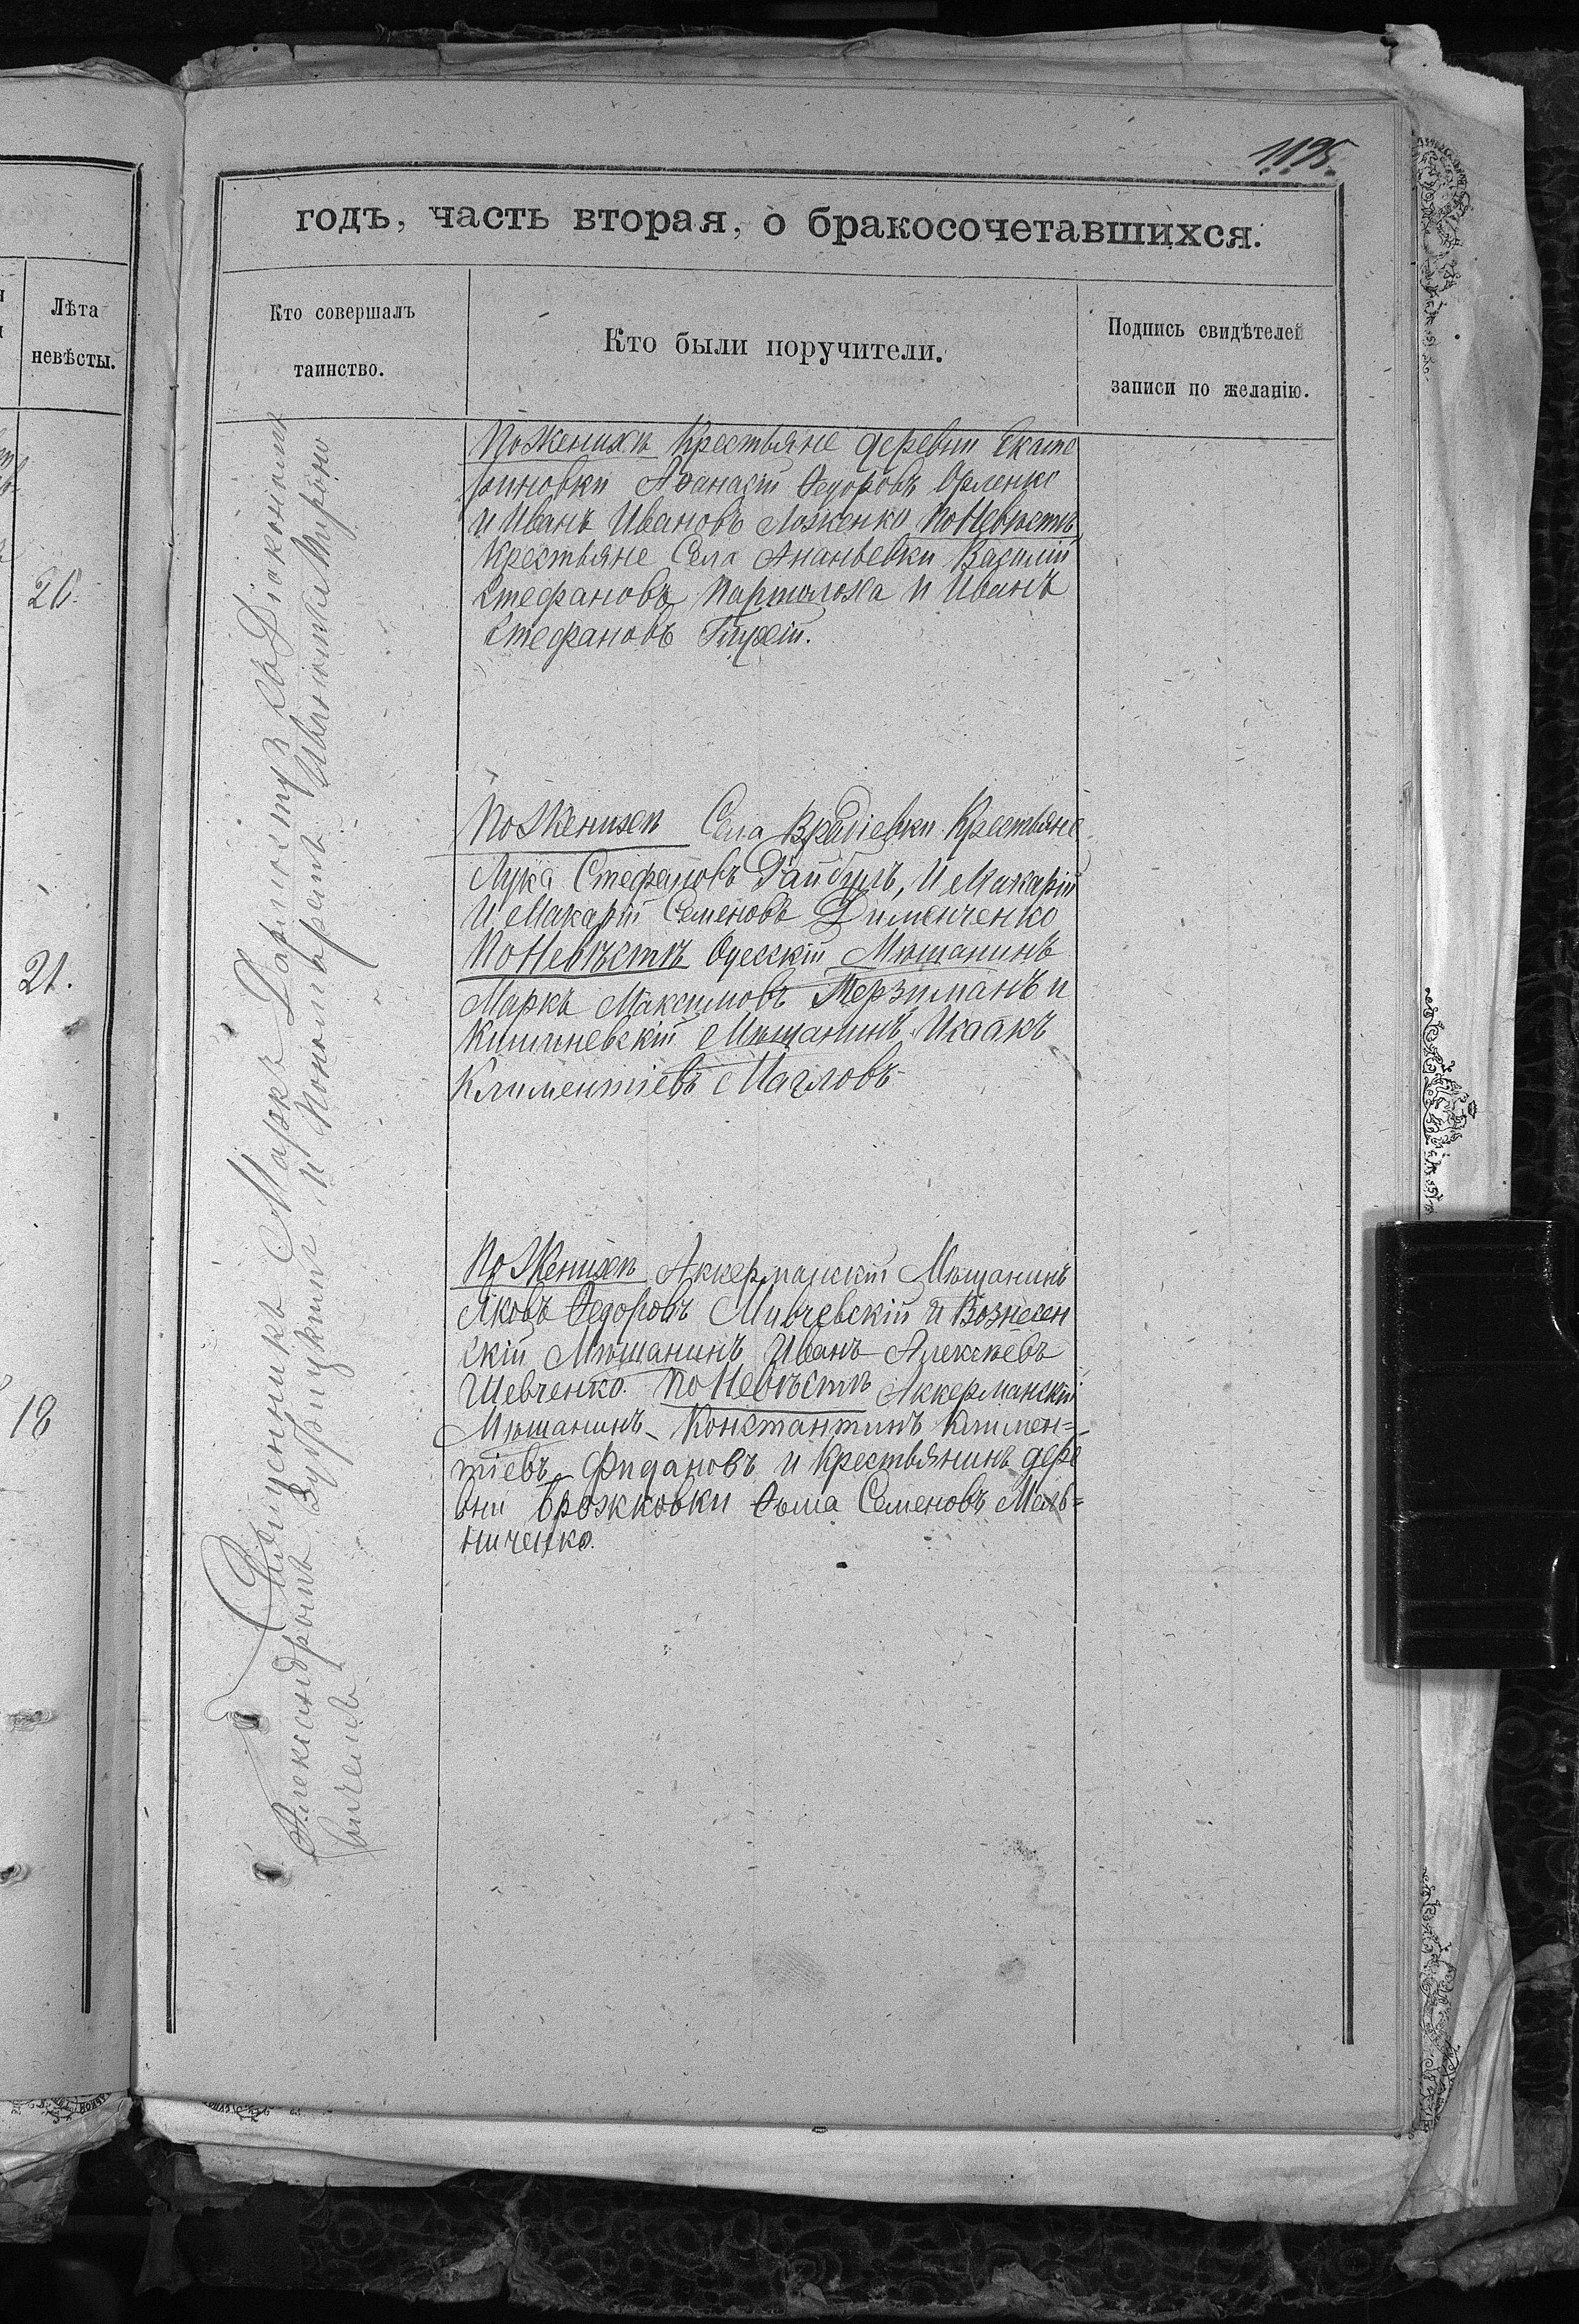 1195.
годъ, часть вторая, о бракосочетавшихся.
Лѣта
невѣсты.
Кто совершалъ
таинство.
Кто были поручители.
Подпись свидѣтелей
записи по желанію.
26.
21.
18
Священникъ Маркъ съ Діакономъ
Александромъ и Псаломщикомъ
По Женихѣ Крестьяне деревни Екате
риновки Аѳанасій Ѳедоровъ Орленко
и Иванъ Ивановъ Ложенко По Невѣстѣ
Крестьяне Села Ананьевки Василій
Стефановъ Парталоха и Иванъ
Стефановъ Глухій.
По Женихѣ Села Врадіевки Крестьяне
Лука Стефановъ Гайбулъ, И Макарій
И Макарій Семеновъ Дименченко
По Невѣстѣ Одесскій Мѣщанинъ
Маркъ Максимовъ Терзиманъ и
Кишиневскій Мѣщанинъ Исаакъ
Климентіевъ Магловъ
По Женихѣ Аккерманскій Мѣщанинъ
Яковъ Ѳедоровъ Мивчевскій и Вознесен
скій Мѣщанинъ Иванъ Алексѣевъ
Шевченко. По Невѣстѣ Аккерманскій
Мѣщанинъ Константинъ Климен=
тіевъ Фидановъ и Крестьянинъ дере
вни Брожковки Ѳома Семеновъ Мель=
ниченко.